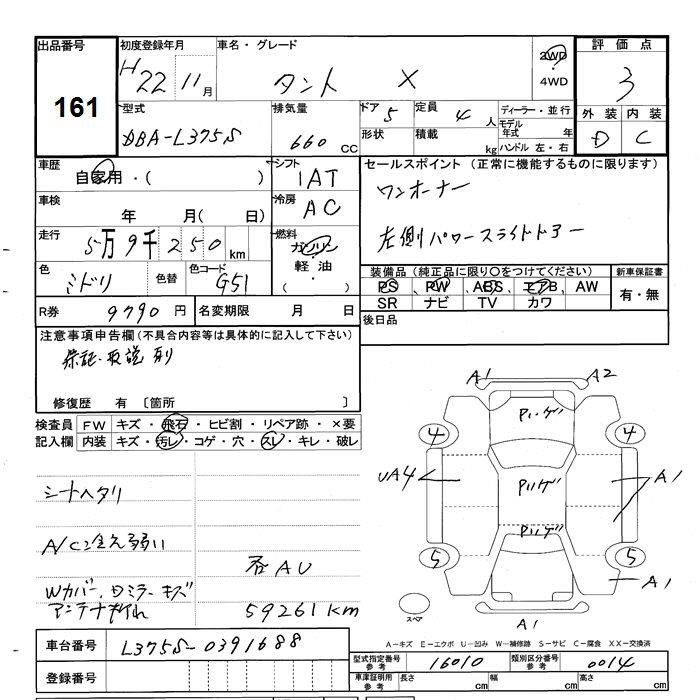 出品番号
161
初度登録年月
H22 11月
車名・グレード
タント X
2WD
4WD
評価点
3
外装 内装
D C
型式
DBA-L375S
排気量
660 CC
ドア 5
定員 4人
形状
積載 kg
ディーラー・並行
モデル年式 年
ハンドル 左・右
車歴
自家用・( )
シフト
IAT
セールスポイント (正常に機能するものに限ります)
ワンオーナー
左側パワースライドドアー
車検
年 月( 日)
冷房
AC
走行
5万9千250km
燃料
ガソリン
軽・油
・( )
色
ミドリ
色替
色コード
G51
装備品 (純正品に限り○をつけてください)
PS、PW、ABS、エアB、AW
SR ナビ TV カワ
新車保証書
有・無
R券 9790円
名変期限 月 日
後日品
注意事項申告欄(不具合内容等は具体的に記入して下さい)
保証・取説 有り
修復歴 有 〔箇所 〕
検査員記入欄
FW キズ・飛石・ヒビ割・リペア跡・×要
内装 キズ・汚レ・コゲ・穴・スレ・キレ・破レ
シートヘタリ
Wカバー、ミラーキズ
アンテナ折れ
59261km
A1 A2
4 4
UA4
A1
5 5
A1
A1
スペア
A-キズ E-エクボ U-凹み W-補修跡 S-サビ C-腐食 XX-交換済
車台番号 L375S-0391688
登録番号
型式指定番号 参考 16010
類別区分番号 参考 0014
車庫証明用 参考
長さ cm
幅 cm
高さ cm